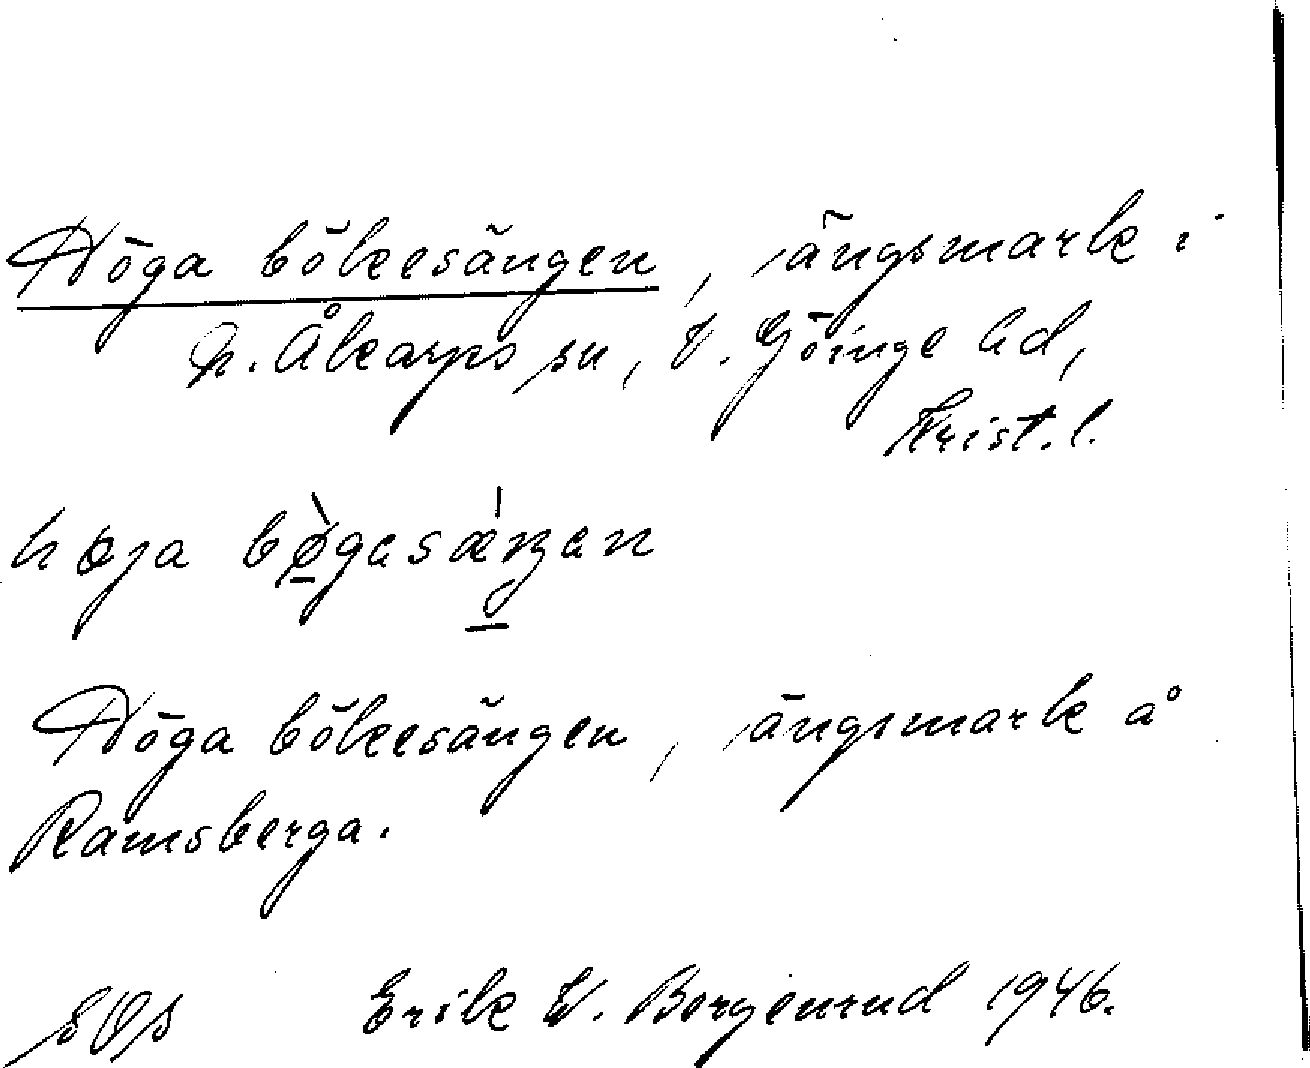 Höga bökesängen, ängsmark i
N. Åkarps sn, V. Göinge hd,
Krist. l.
Höga bökesängen, ängsmark å
Ramsberga.
Erik W. Borgenrud 1946.